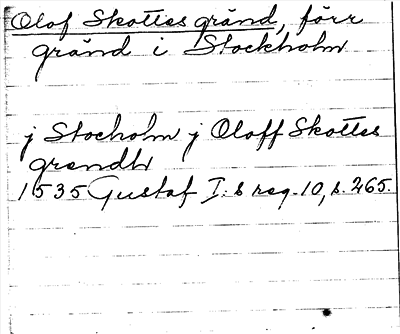 Olof Skottes gränd, förr
gränd i Stockholm
j Stocholm j Oloff Skottes
grendh
1535 Gustaf I:s reg. 10, s. 265.